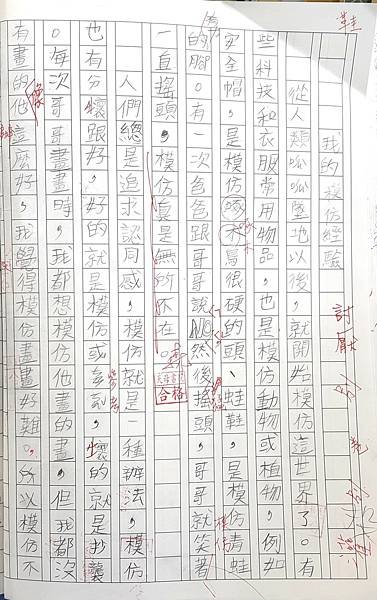 我的模仿經驗
從人類呱呱墜地以後，就開始模仿這世界了。有
些科技和衣服常用物品，也是模仿動物或植物，例如
安全帽，是模仿啄木鳥很硬的頭、蛙鞋，是模仿青蛙
的腳。有一次爸爸跟哥哥說NO然後搖頭，哥哥就笑著
一直搖頭，模仿真是無所不在。
人們總是追求認同感，模仿就是一種辦法，模仿
也有分壞跟好，好的就是模仿或參考，壞的就是抄襲
。每次哥哥畫畫時，我都想模仿他畫的畫，但我都沒
有畫的他這麼好，我覺得模仿畫畫好難。所以模仿不
鞋
討厭
合格
模仿
像